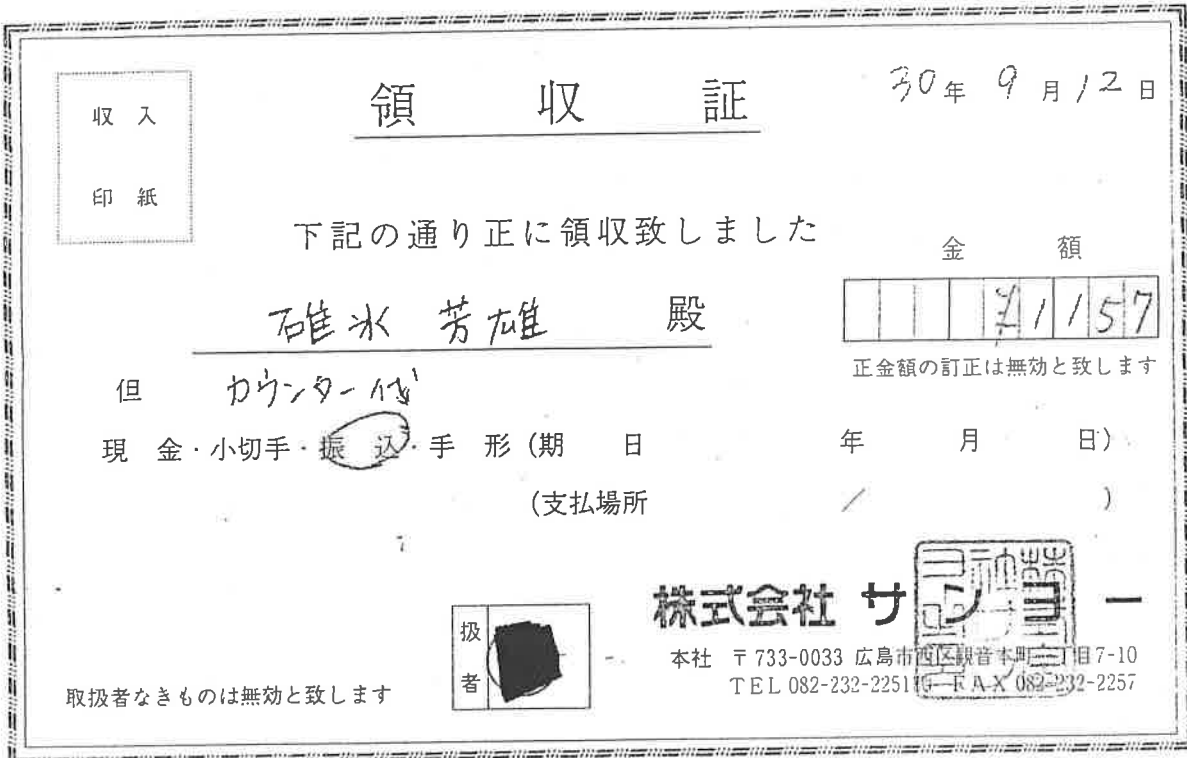 領収証
30年 9月12日
収入
印紙
下記の通り正に領収致しました
金額
碓氷 芳雄 殿
¥1157
正金額の訂正は無効と致します
但 カウンター代
現金・小切手・振込・手形(期日 年 月 日)
(支払場所 / )
株式会社 サンヨー
扱者
本社 〒733-0033 広島市西区観音本町一丁目7-10
TEL 082-232-2251 FAX 082-232-2257
取扱者なきものは無効と致します